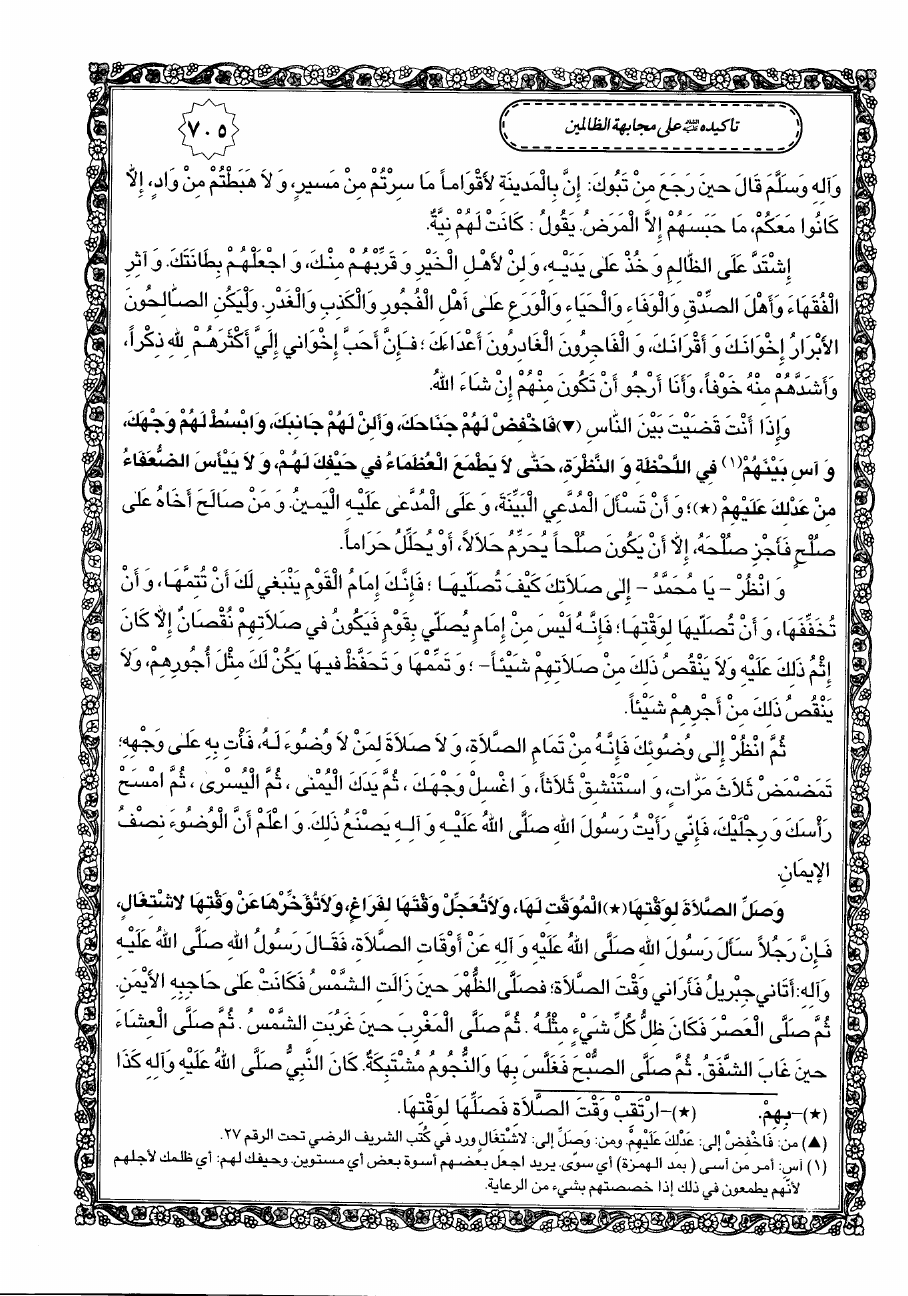 تأكيده عليه السلام على مجابهة الظالمين
٧٠٥
وَآلِهِ وَسَلَّمَ قَالَ حينَ رَجَعَ مِنْ تَبُوكَ: إِنَّ بِالْمَدينَةِ لأَقْوَاماً مَا سِرْتُمْ مِنْ مَسيرٍ، وَ لاَ هَبَطْتُمْ مِنْ وَادٍ، إِلاَّ
كَانُوا مَعَكُمْ، مَا حَبَسَهُمْ إِلاَّ الْمَرَضُ. يَقُولُ : كَانَتْ لَهُمْ نِيَّةٌ.
إِشْتَدَّ عَلَى الظَّالِمِ وَ خُذْ عَلى يَدَيْهِ، وَ لِنْ لأَهْلِ الْخَيْرِ وَ قَرِّبْهُمْ مِنْكَ، وَ اجْعَلْهُمْ بِطَانَتَكَ. وَ آثِرِ
الْفُقَهَاءَ وَأَهْلَ الصِّدْقِ وَالْوَفَاءِ وَالْحَيَاءِ وَالْوَرَعِ عَلى أَهْلِ الْفُجُورِ وَالْكَذِبِ وَالْغَدْرِ. وَلْيَكُنِ الصَّالِحُونَ
الأَبْرَارُ إِخْوَانَكَ وَ أَقْرَانَكَ، وَ الْفَاجِرُونَ الْغَادِرُونَ أَعْدَاءَكَ ؛ فَإِنَّ أَحَبَّ إِخْوَاني إِلَيَّ أَكْثَرُهُمْ لِلّهِ ذِكْراً،
وَأَشَدُّهُمْ مِنْهُ خَوْفاً، وَأَنَا أَرْجُو أَنْ تَكُونَ مِنْهُمْ إِنْ شَاءَ اللّهُ.
وَإِذَا أَنْتَ قَضَيْتَ بَيْنَ النَّاسِ (▼)فَاخْفِضْ لَهُمْ جَنَاحَكَ، وَأَلِنْ لَهُمْ جَانِبَكَ، وَابْسُطْ لَهُمْ وَجْهَكَ،
وَ آسِ بَيْنَهُمْ(١) فِي اللَّحْظَةِ وَ النَّظْرَةِ، حَتّى لاَ يَطْمَعَ الْعُظَمَاءُ في حَيْفِكَ لَهُمْ، وَ لاَ يَيْأَسَ الضُّعَفَاءُ
مِنْ عَدْلِكَ عَلَيْهِمْ (★)؛ وَ أَنْ تَسْأَلَ الْمُدَّعِيَ الْبَيِّنَةَ، وَ عَلَى الْمُدَّعى عَلَيْهِ الْيَمينُ. وَ مَنْ صَالَحَ أَخَاهُ عَلى
صُلْحٍ فَأَجِزْ صُلْحَهُ، إِلاَّ أَنْ يَكُونَ صُلْحاً يُحَرِّمُ حَلاَلاً، أَوْ يُحَلِّلُ حَرَاماً.
وَ انْظُرْ – يَا مُحَمَّدُ – إِلى صَلاَتِكَ كَيْفَ تُصَلّيهَا ؛ فَإِنَّكَ إِمَامُ الْقَوْمِ يَنْبَغي لَكَ أَنْ تُتِمَّهَا، وَ أَنْ
تُخَفِّفَهَا، وَ أَنْ تُصَلِّيَهَا لِوَقْتِهَا؛ فَإِنَّهُ لَيْسَ مِنْ إِمَامٍ يُصَلّي بِقَوْمٍ فَيَكُونُ في صَلاَتِهِمْ نُقْصَانٌ إِلاَّ كَانَ
إِثْمُ ذَلِكَ عَلَيْهِ وَلاَ يَنْقُصُ ذَلِكَ مِنْ صَلاَتِهِمْ شَيْئاً– ؛ وَ تَمِّمْهَا وَ تَحَفَّظْ فيهَا يَكُنْ لَكَ مِثْلُ أُجُورِهِمْ، وَلاَ
يَنْقُصُ ذَلِكَ مِنْ أَجْرِهِمْ شَيْئاً.
ثُمَّ انْظُرْ إِلى وُضُوئِكَ فَإِنَّهُ مِنْ تَمَامِ الصَّلاَةِ، وَ لاَ صَلاَةَ لِمَنْ لاَ وُضُوءَ لَهُ، فَأْتِ بِهِ عَلى وَجْهِهِ؛
تَمَضْمَضْ ثَلاَثَ مَرَّاتٍ، وَ اسْتَنْشِقْ ثَلاَثاً، وَ اغْسِلْ وَجْهَكَ ، ثُمَّ يَدَكَ الْيُمْنى ، ثُمَّ الْيُسْرى ، ثُمَّ امْسَحْ
رَأْسَكَ وَ رِجْلَيْكَ، فَإِنّي رَأَيْتُ رَسُولَ اللّهِ صَلَّى اللّهُ عَلَيْهِ وَ آلِهِ يَصْنَعُ ذَلِكَ. وَ اعْلَمْ أَنَّ الْوُضُوءَ نِصْفُ
الإيمَانِ.
وَصَلِّ الصَّلاَةَ لِوَقْتِهَا(★)الْمُوَقَّتِ لَهَا، وَلاَ تُعَجِّلْ وَقْتَهَا لِفَرَاغٍ، وَلاَ تُؤَخِّرْهَا عَنْ وَقْتِهَا لاشْتِغَالٍ،
فَإِنَّ رَجُلاً سَأَلَ رَسُولَ اللّهِ صَلَّى اللّهُ عَلَيْهِ وَ آلِهِ عَنْ أَوْقَاتِ الصَّلاَةِ، فَقَالَ رَسُولُ اللّهِ صَلَّى اللّهُ عَلَيْهِ
وَآلِهِ: أَتَاني جِبْريلُ فَأَرَاني وَقْتَ الصَّلاَةِ؛ فَصَلَّى الظُّهْرَ حينَ زَالَتِ الشَّمْسُ فَكَانَتْ عَلى حَاجِبِهِ الأَيْمَنِ.
ثُمَّ صَلَّى الْعَصْرَ فَكَانَ ظِلُّ كُلِّ شَيْءٍ مِثْلُهُ . ثُمَّ صَلَّى الْمَغْرِبَ حينَ غَرُبَتِ الشَّمْسُ . ثُمَّ صَلَّى الْعِشَاءَ
حينَ غَابَ الشَّفَقُ. ثُمَّ صَلَّى الصُّبْحَ فَغَلَّسَ بِهَا وَالنُّجُومُ مُشْتَبِكَةٌ. كَانَ النَّبِيُّ صَلَّى اللّهُ عَلَيْهِ وَآلِهِ كَذَا
(★)–بِهِمْ. (★)–ارْتَقِبْ وَقْتَ الصَّلاَةِ فَصَلِّهَا لِوَقْتِهَا.
(▲) من: فَاخْفِضْ إلى: عَدْلِكَ عَلَيْهِمْ. ومن: وَصَلِّ إلى: لاشْتِغَالٍ ورد في كُتب الشريف الرضي تحت الرقم ٢٧.
(١) آس: أمر من آسى ( بمد الهمزة) أي سوّى. يريد اجعل بعضهم أسوة بعض أي مستوين. وحيفك لهم: أي ظلمك لأجلهم
لأنّهم يطمعون في ذلك إذا خصصتهم بشيء من الرعاية.